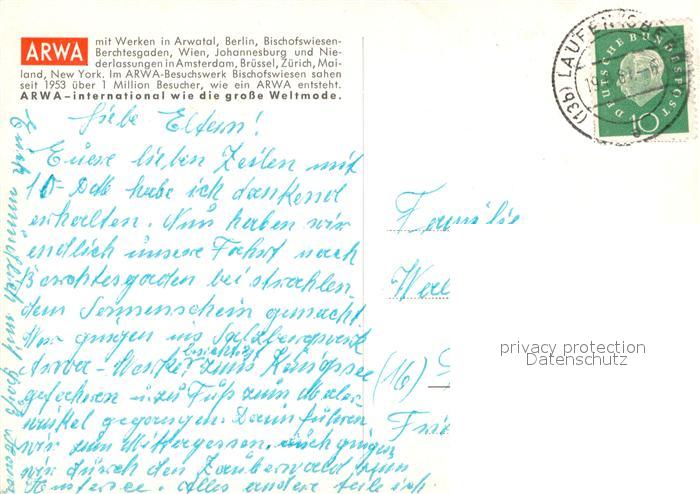 ARWA mit Werken in Arwatal, Berlin, Bischofswiesen-
Berchtesgaden, Wien, Johannesburg und Nie-
derlassungen in Amsterdam, Brüssel, Zürich, Mai-
land, New York. Im ARWA-Besuchswerk Bischofswiesen sahen
seit 1953 über 1 Million Besucher, wie ein ARWA entsteht.
ARWA-international wie die große Weltmode.
Liebe Eltern!
Euere lieben Zeilen mit
10- DM habe ich dankend
erhalten. Nun haben wir
endlich unsere Fahrt nach
Berchtesgaden bei strahlen-
dem Sonnenschein gemacht.
Wir gingen ins Salzbergwerk
Arwa-Werke besichtigt zum Königssee
gefahren u. zu Fuß zum Maler-
winkel gegangen. Dann fuhren
wir zum Mittagessen. auch gingen
wir durch den Zauberwald zum
Hintersee. Alles andere teile ich
Euch mündlich mit
(13b) LAUFEN
DEUTSCHE BUNDESPOST
10
Familie
(16)
privacy protection
Datenschutz